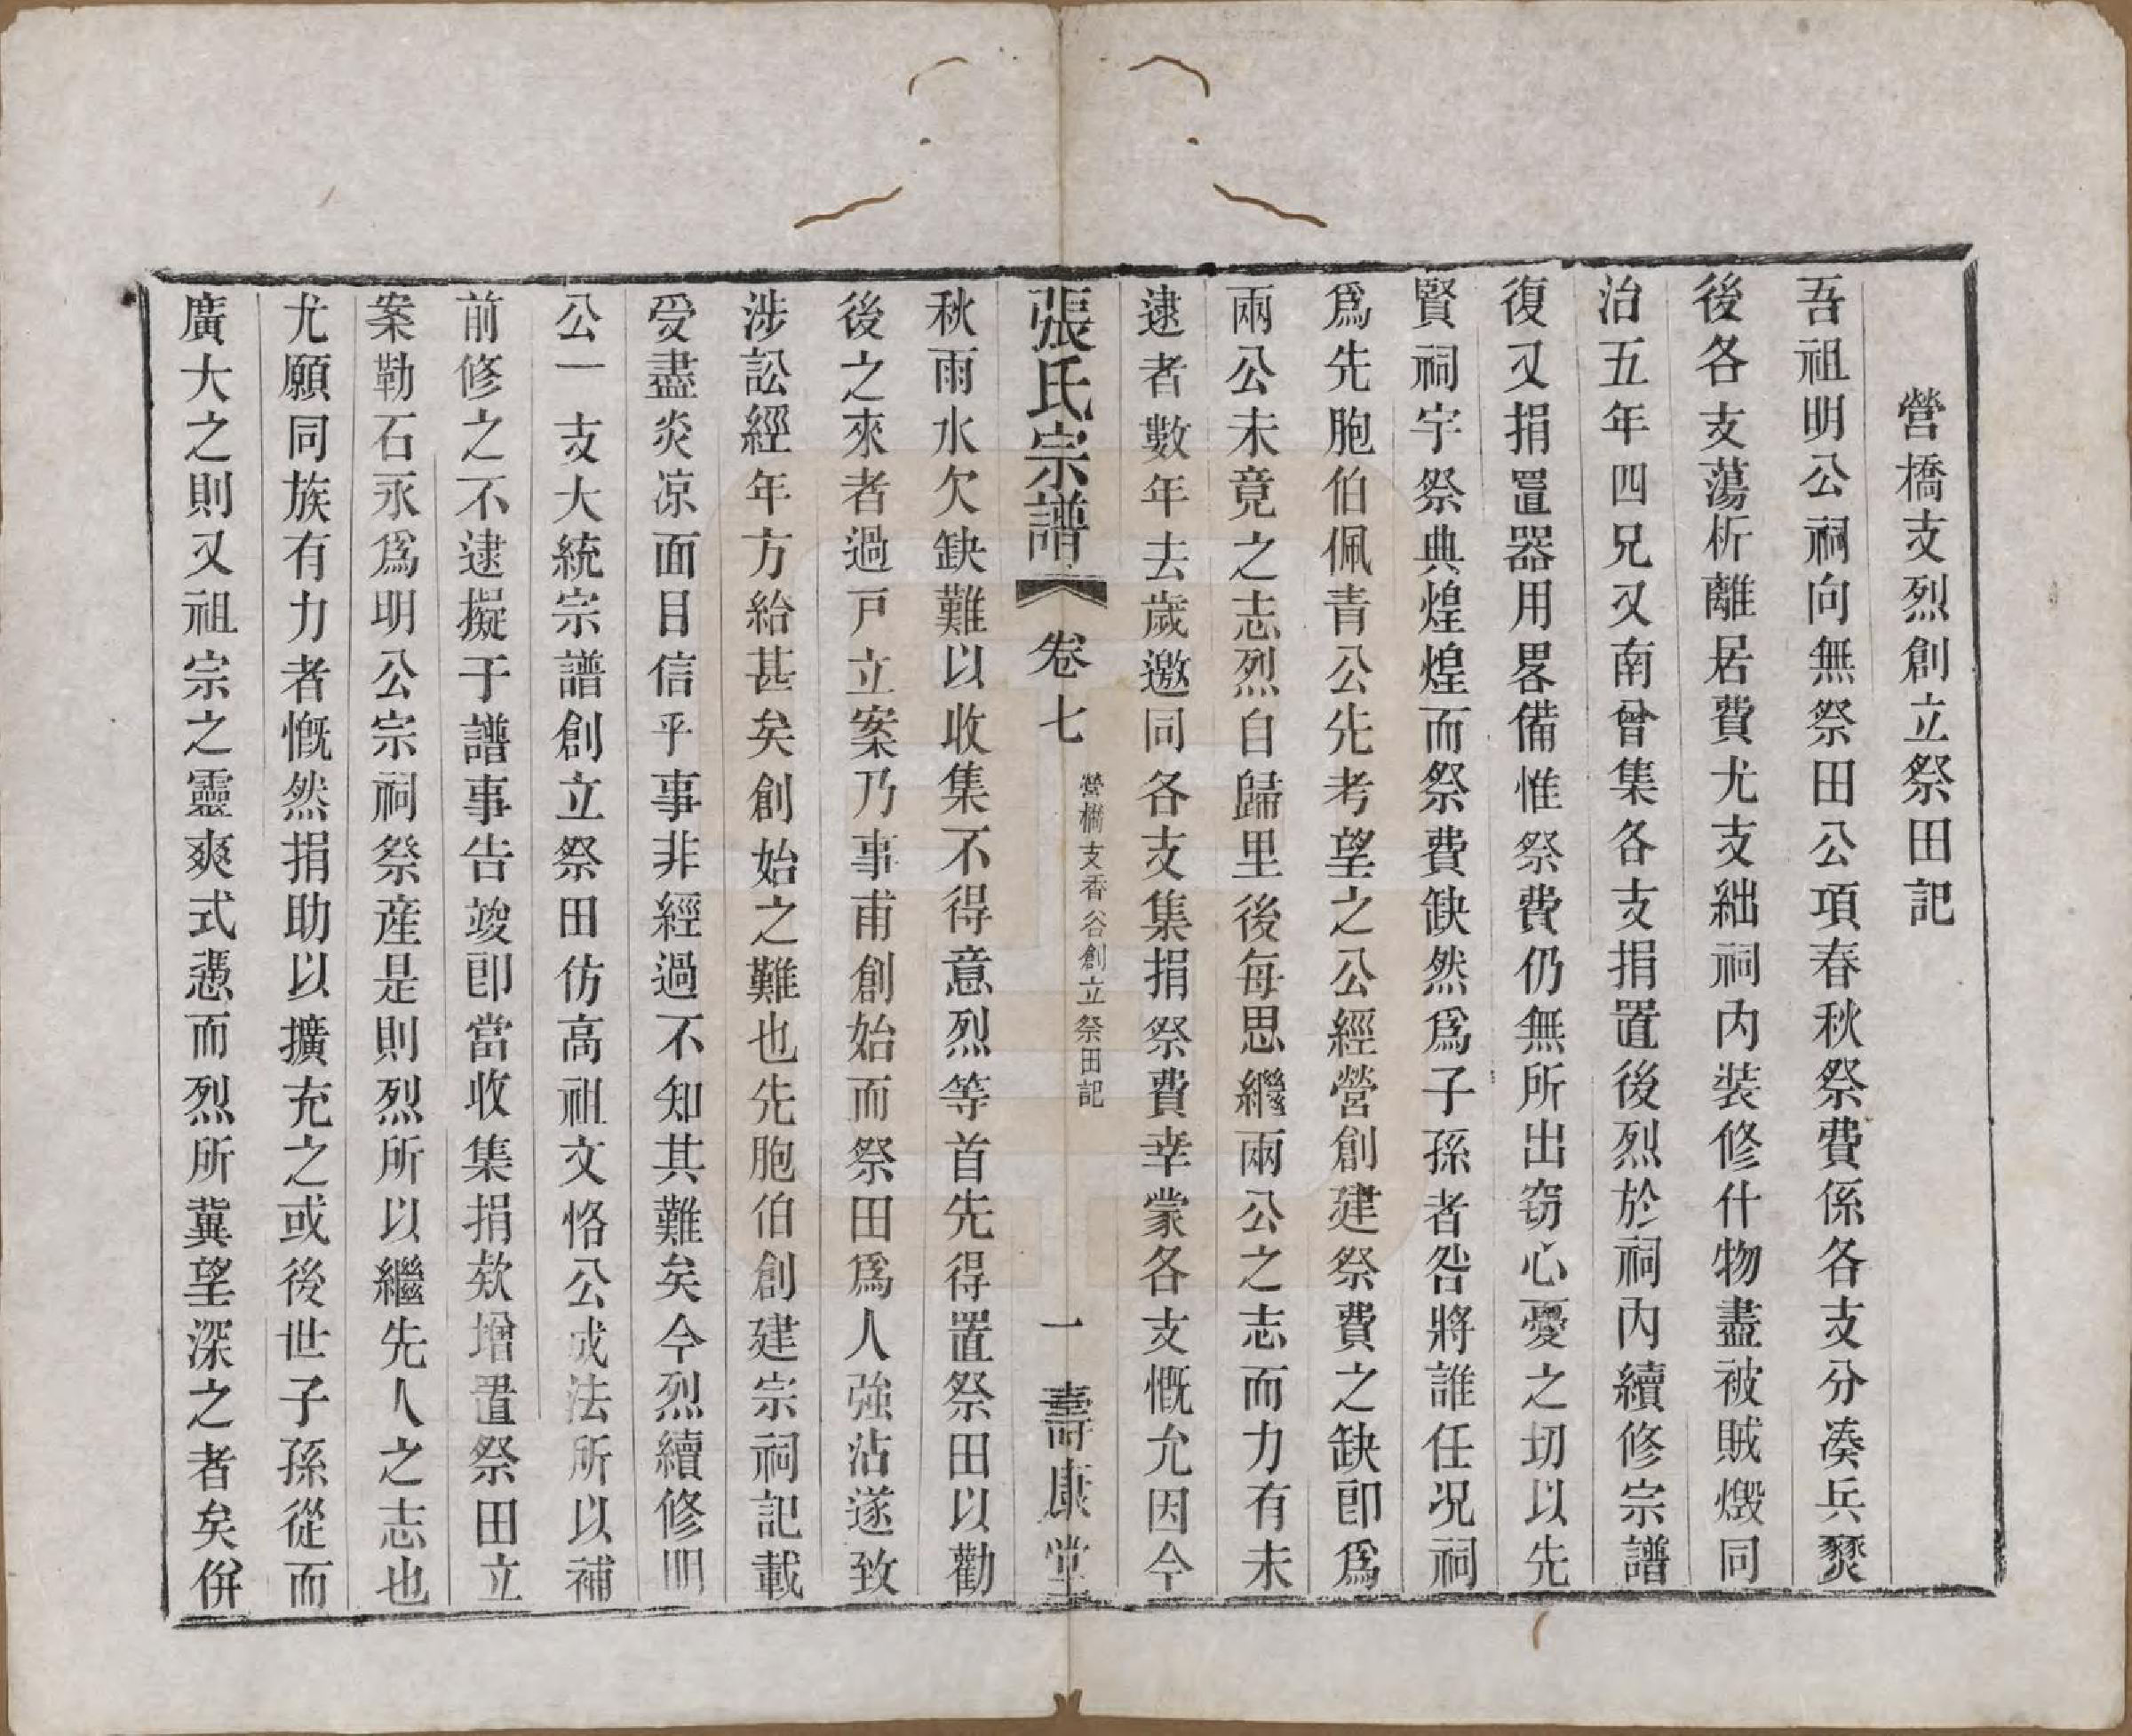 營橋支烈創立祭田記
吾祖明公祠向無祭田公項春秋祭費係各支分凑兵燹
後各支蕩析離居費尤支絀祠内裝修什物盡被賊燬同
治五年四兄又南曾集各支捐置後烈於祠内續修宗譜
復又捐置器用畧備惟祭費仍無所出窃心憂之切以先
賢祠宇祭典煌煌而祭費缺然爲子孫者咎將誰任况祠
爲先胞伯佩青公先考望之公經營創建祭費之缺卽爲
兩公未竟之志烈自歸里後每思繼兩公之志而力有未
逮者數年去歲邀同各支集捐祭費幸蒙各支慨允因今
張氏宗譜 卷七 營橋支香谷創立祭田記 一 壽康堂
秋雨水欠缺難以收集不得意烈等首先得置祭田以勸
後之來者過戸立案乃事甫創始而祭田爲人強沾遂致
涉訟經年方給甚矣創始之難也先胞伯創建宗祠記載
受盡炎凉面目信乎事非經過不知其難矣今烈續修明
公一支大統宗譜創立祭田仿高祖文恪公成法所以補
前修之不逮擬于譜事告竣卽當收集捐欵增置祭田立
案勒石永爲明公宗祠祭産是則烈所以繼先人之志也
尤願同族有力者慨然捐助以擴充之或後世子孫從而
廣大之則又祖宗之靈爽式憑而烈所冀望深之者矣倂